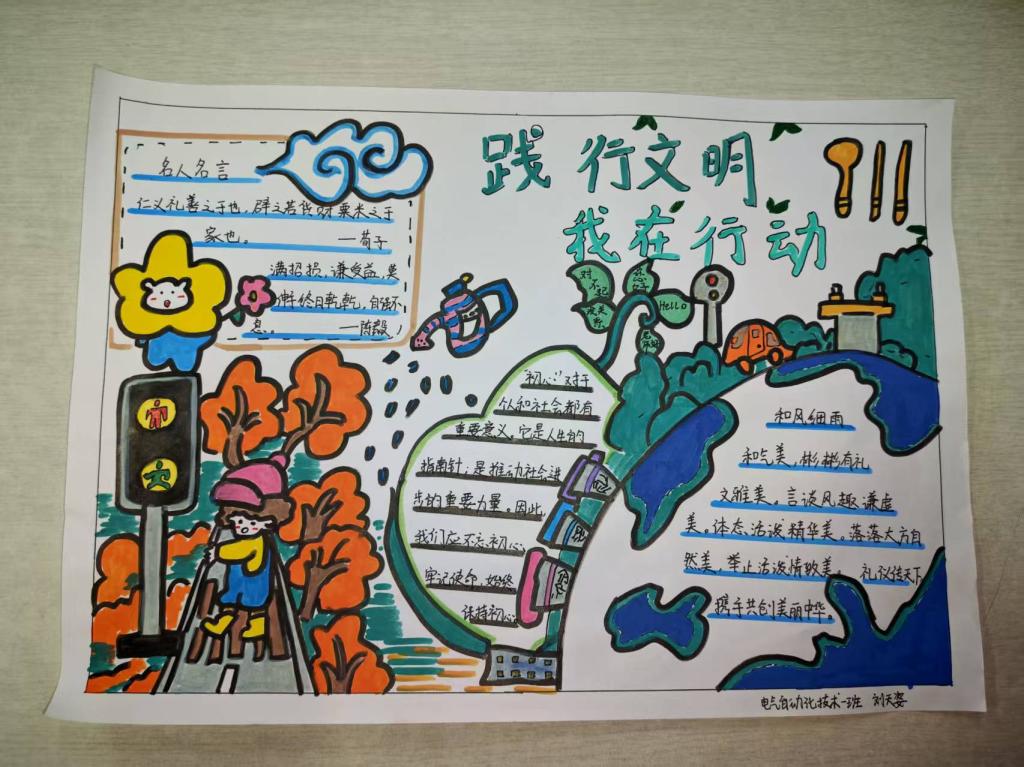 践行文明
我在行动
名人名言
仁义礼善之于也,辟之若货财粟米之于
家也。 一荀子
满招损,谦受益,莫
终日乾乾,自强不
息。 一陈毅
对不起
没关系
您好
Hello
"初心"对于
个人和社会都有
重要意义。它是人生的
指南针;是推动社会进
步的重要力量。因此,
我们应不忘初心、
牢记使命,始终
保持初心。
和风细雨
和气美,彬彬有礼
文雅美。言谈风趣谦虚
美。体态活泼精华美。落落大方自
然美,举止活泼情致美。 礼仪传天下
携手共创美丽中华。
电气自动化技术一班 刘天姿